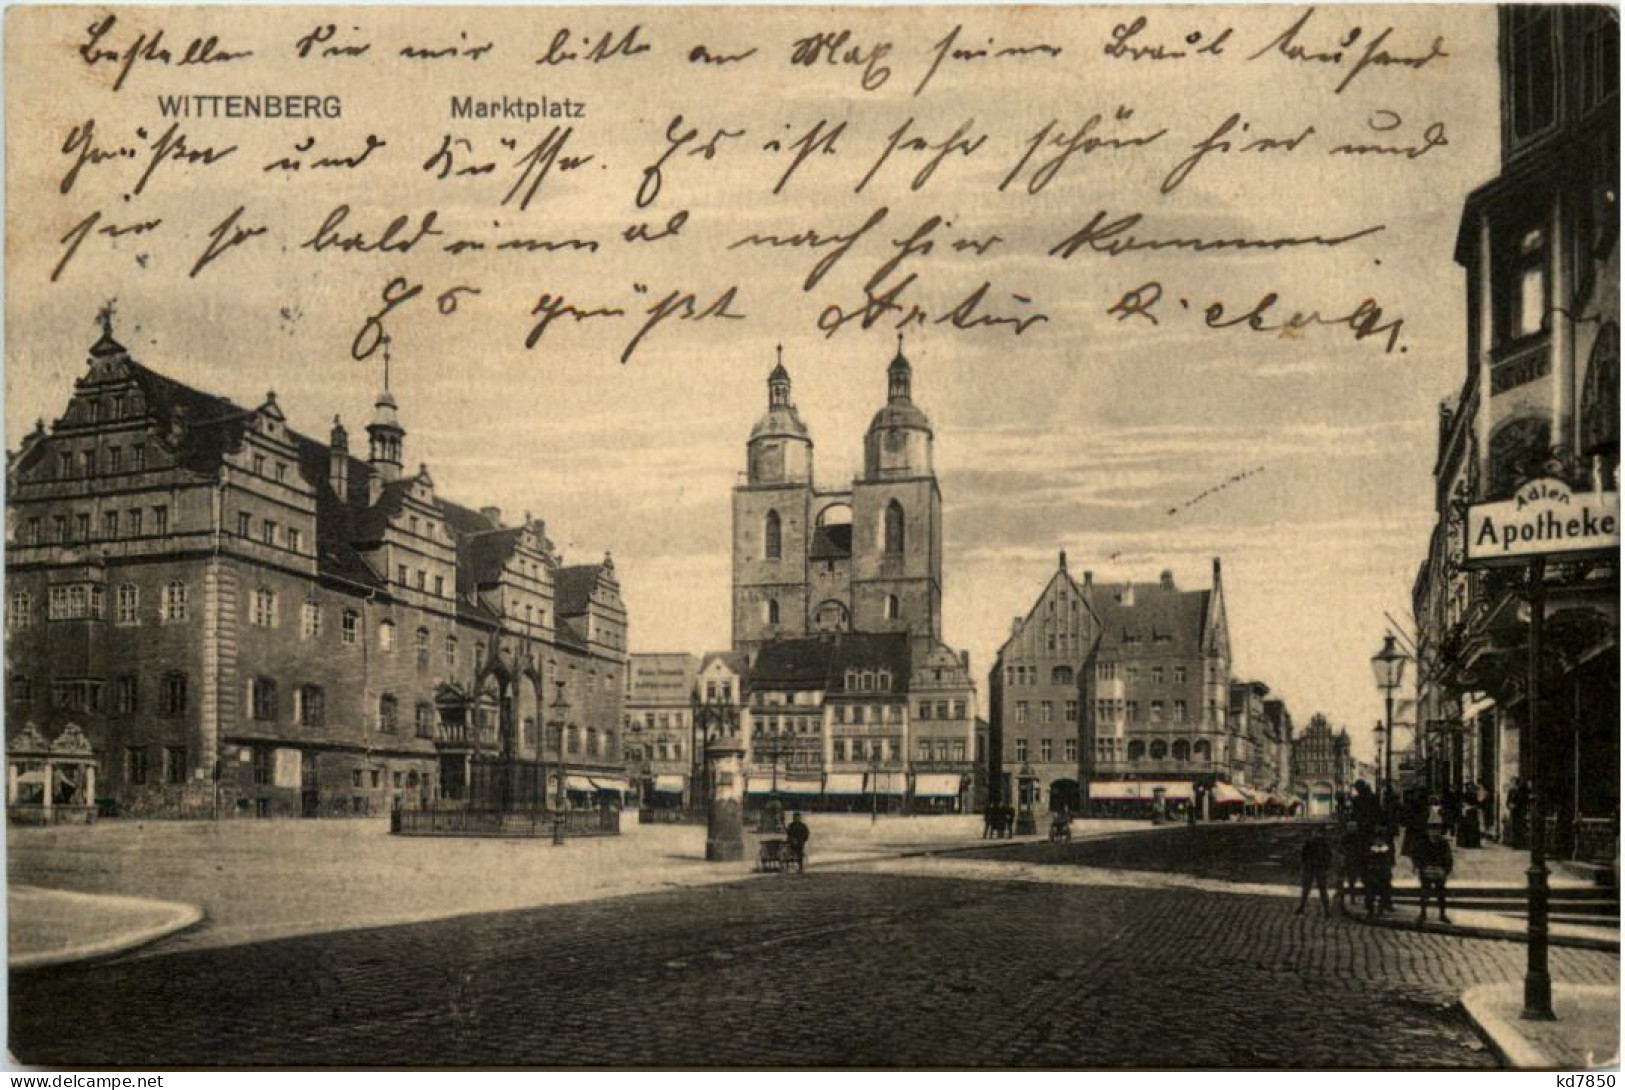 Bestellen Sie mir bitte an Max seine Braut tausend
WITTENBERG Marktplatz
Grüße und Küsse. Es ist sehr schön hier und
sie so bald einmal nach hier kommen.
Es grüßt Artur
Adler
Apotheke
kd7850